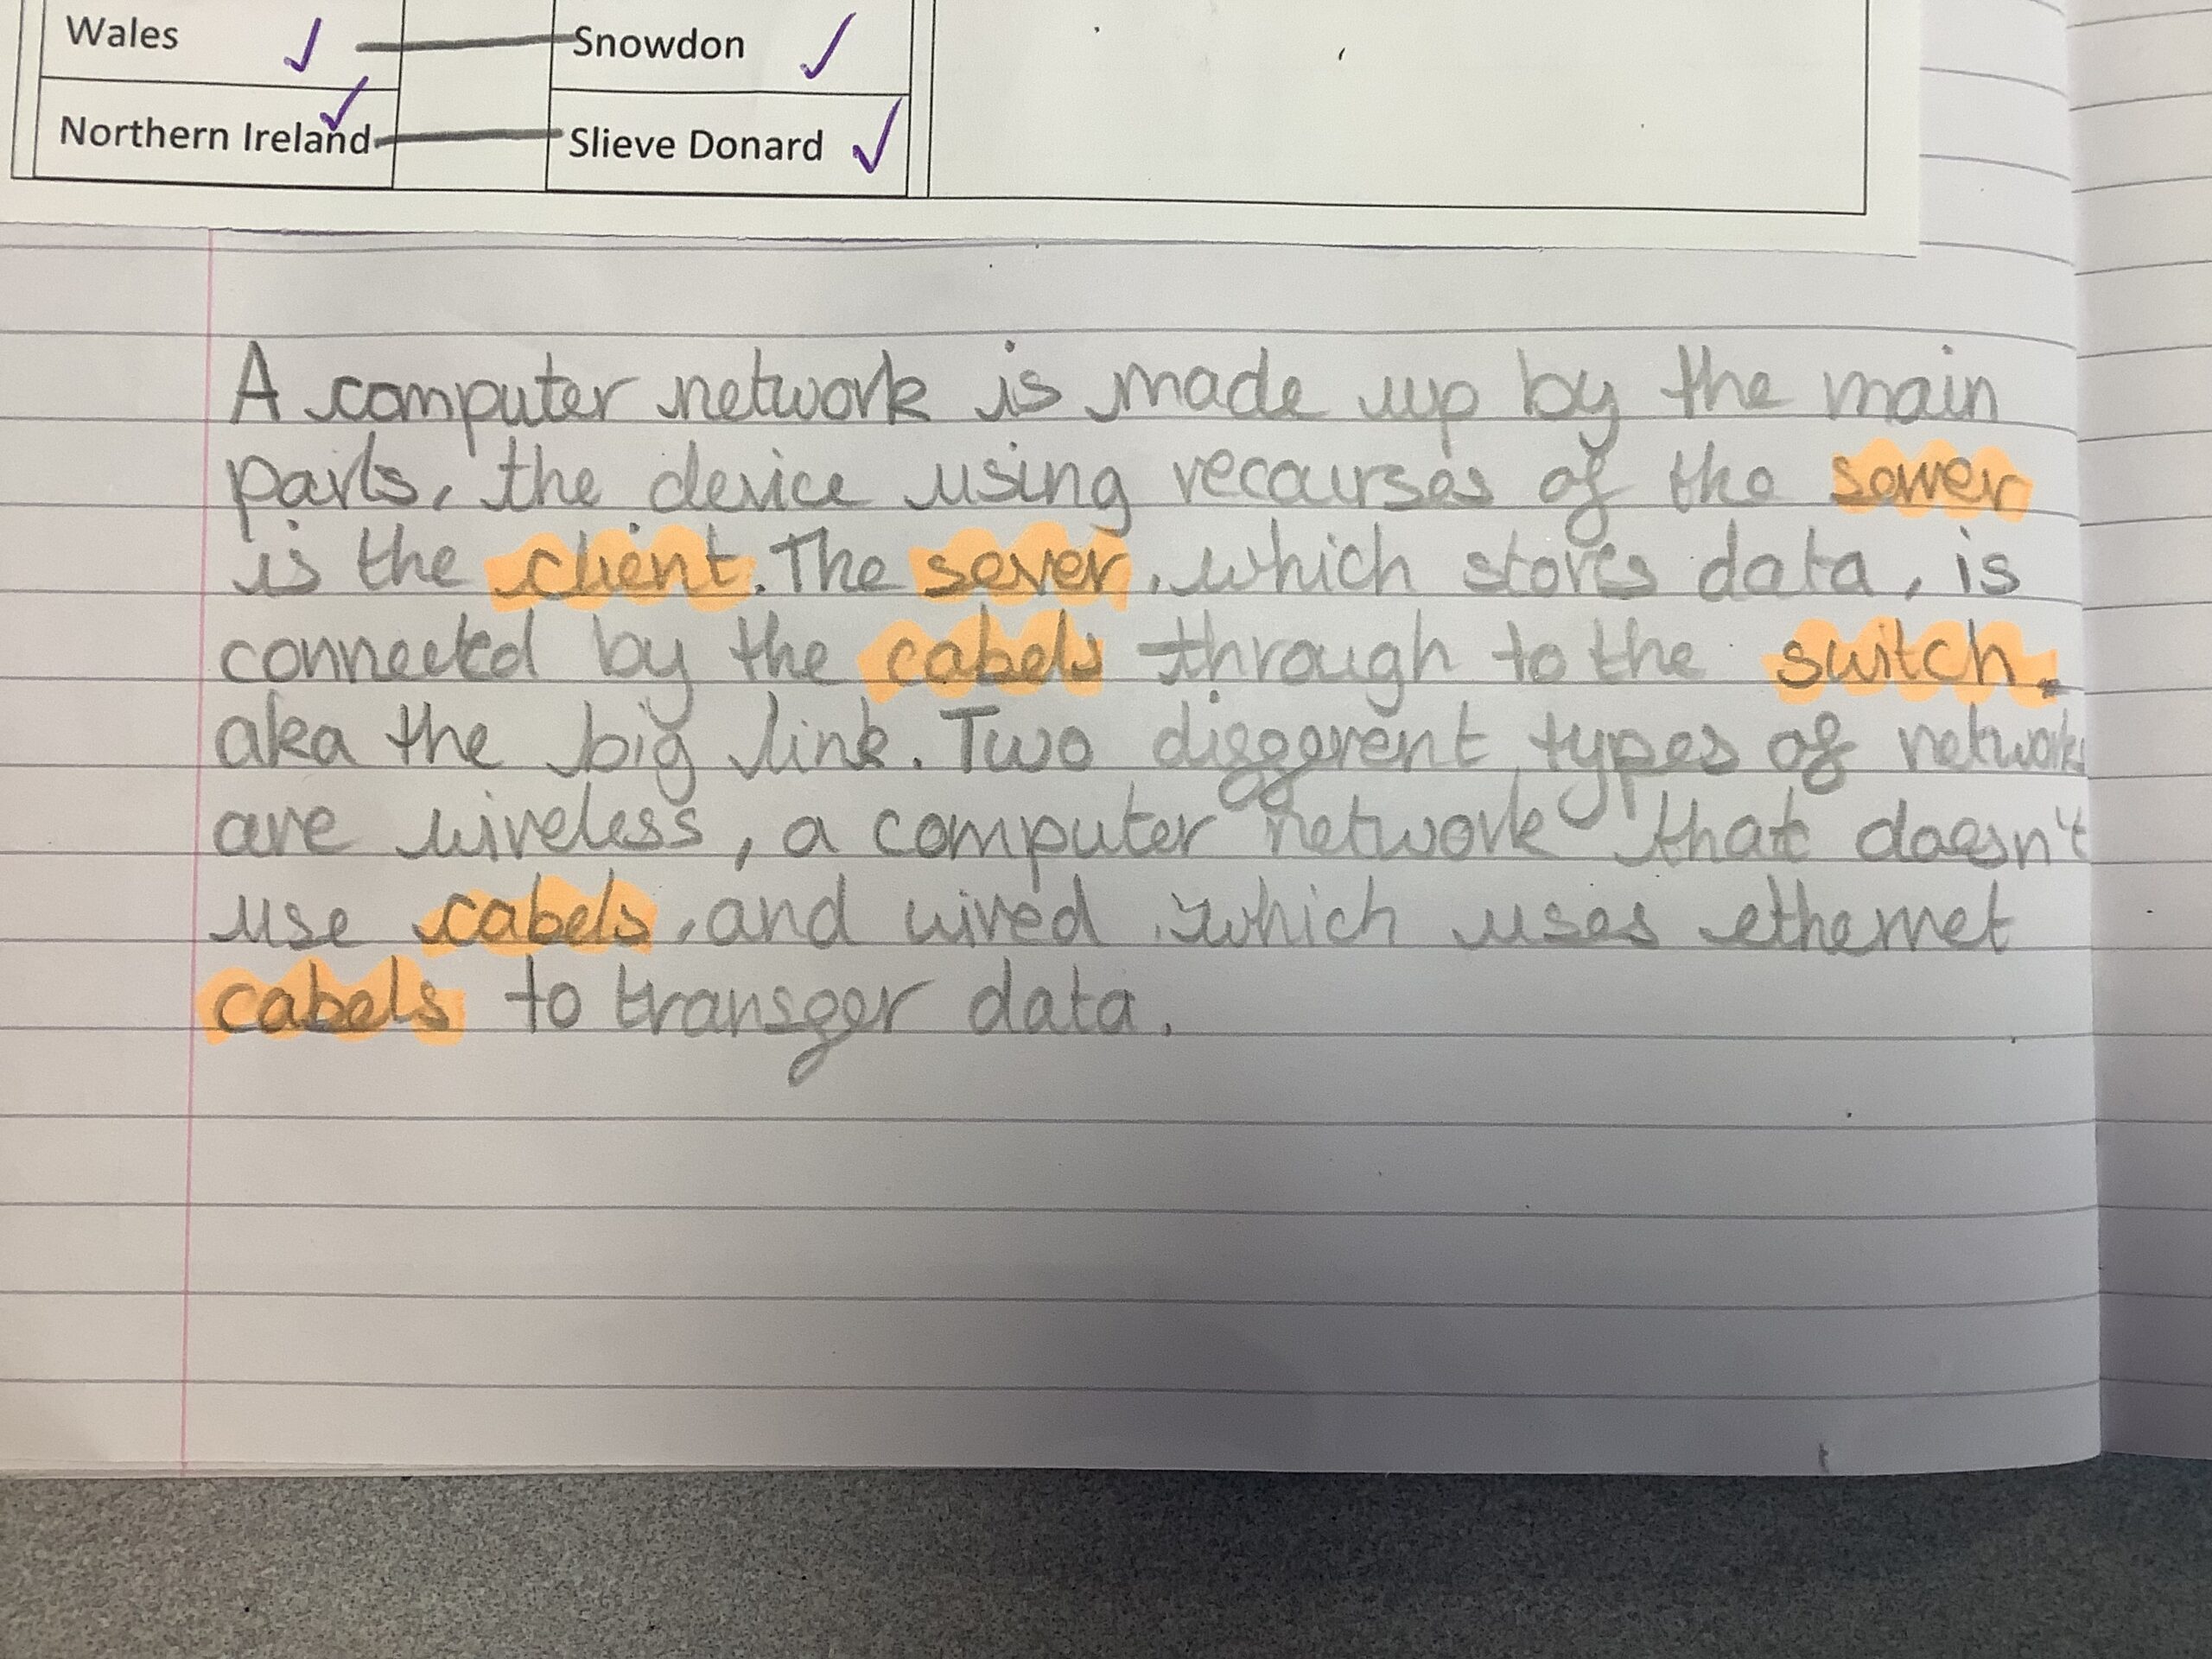 Wales Snowdon
Northern Ireland Slieve Donard
A computer network is made up by the main
parts, the device using recourses of the sower
is the client. The sever, which stores data, is
connected by the cabels through to the switch.
aka the big link. Two different types of networks
are wireless, a computer network that doesn't
use cabels, and wired which uses ethernet
cabels to transfer data.